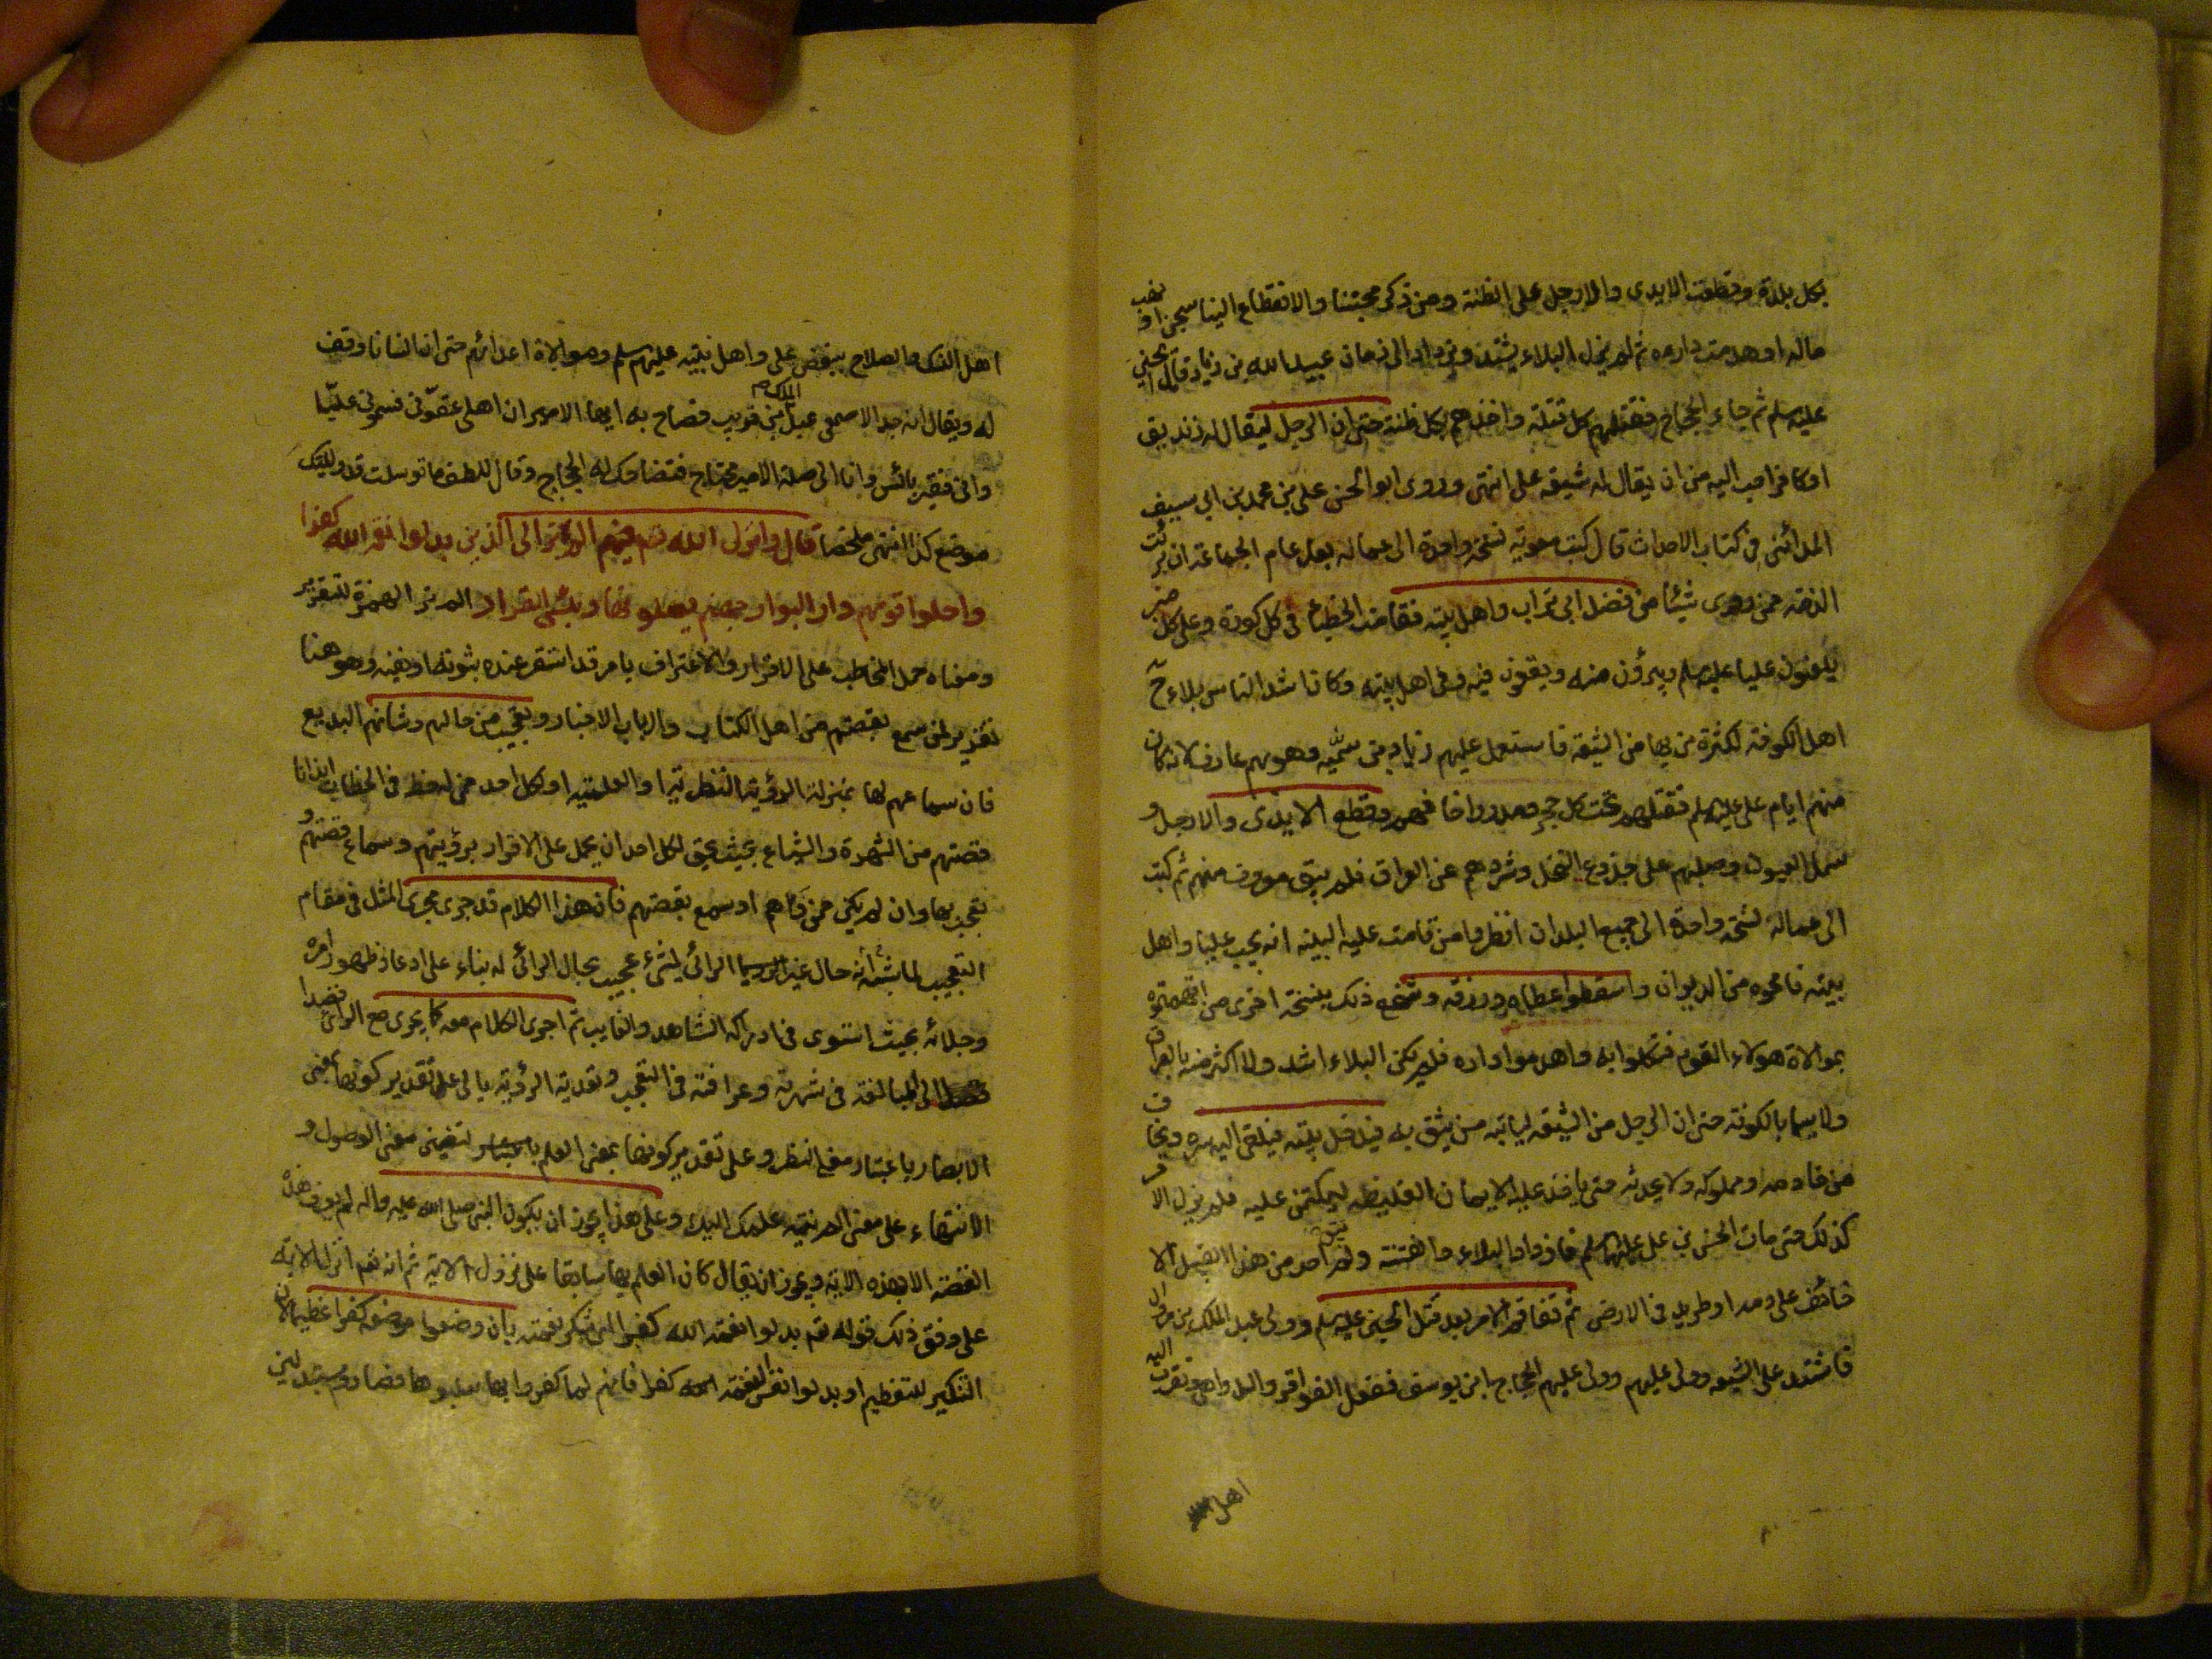 بكل بلدة وقطعت الايدى والارجل على الظنة ومن ذكر محبتنا والانقطاع الينا سجن او نهب
ماله او هدمت داره ثم لم يزل البلاء يشتد ويزداد الى زمان عبيد الله بن زياد قاتل الحسين
عليه السلم ثم جاء الحجاج فقتلهم كل قتلة واخذهم بكل ظنة حتى ان الرجل ليقال له زنديق
او كافر احب اليه من ان يقال له شيعة على انتهى وروى ابو الحسن على بن محمد بن ابى سيف
المدائنى فى كتاب الاحداث قال كتب معوية نسخة واحدة الى عماله بعد عام الجماعة ان برئت
الذمة ممن روى شيئا من فضل ابى تراب واهل بيته فقامت الخطباء فى كل كورة وعلى كل منبر
يلعنون عليا عليه السلم ويبرؤن منه ويقعون فيه وفى اهل بيته وكان اشد الناس بلاء ح
اهل الكوفة لكثرة من بها من الشيعة فاستعمل عليهم زياد بن سمية وهو بهم عارف لانه كان
منهم ايام على عليه السلم فقتلهم تحت كل حجر ومدر واخافهم وقطع الايدى والارجل و
سمل العيون وصلبهم على جذوع النخل وشردهم عن العراق فلم يبق معروف منهم ثم كتب
الى عماله نسخة واحدة الى جميع البلدان انظروا من قامت عليه البينة انه يحب عليا واهل
بيته فامحوه من الديوان واسقطوا عطاه ورزقه وشفع ذلك بنسخة اخرى من اتهمتموه
بموالاة هولاء القوم فنكلوا به واهدموا داره فلم يكن البلاء اشد ولا اكثر منه بالعراق
ولا سيما بالكوفة حتى ان الرجل من الشيعة لياتيه من يثق به فيدخل بيته فيلقى اليه سره ويخاف
من خادمه ومملوكه ولا يحدثه حتى ياخذ عليه الايمان الغليظه ليمكتمن عليه فلم يزل الامر
كذلك حتى مات الحسن بن على عليهما السلم فازداد البلاء والفتنة ولم يبق احد من هذا القبيل الا
خائف على دمه او طريد فى الارض ثم تفاقم الامر بعد قتل الحسين عليه السلم وولى عبد الملك بن مروان
فاشتد على الشيعه وولى عليهم الحجاج ابن يوسف ففعل الفواقر والبلواهى وتقرب اليه
اهل
اهل النسك والصلاح ببغض على واهل بيته عليهم السلم وموالاة اعدائهم حتى ان انسانا وقف
له ويقال انه جد الاصمعى عبد الملك بن قريب فصاح به ايها الامير ان اهلى عقونى فسمونى عليا
وانى فقير بائس وانا الى صلة الامير محتاج فتضاحك له الحجاج وقال للطف ما توسلت قد وليتك
موضع كذا انتهى ملخصا قال وانزل الله فيهم الم تر الى الذين بدلوا نعمة الله كفرا
واحلوا قومهم دار البوار جهنم يصلونها وبئس القرار الم تر الهمزة للتقرير
ومعناه حمل المخاطب على الاقرار والاعتراف بامر قد استقر عنده ثبوته او نفيه وهو هنا
تقرير لمن سمع بقصتهم من اهل الكتاب وارباب الاخبار وتعجيب من حالهم وشانهم البديع
فان سماعهم لها بمنزلة الرؤية النظرية او العلمية او لكل احد ممن له حظ فى الخطاب ايذانا
قصتهم من الشهرة والشياع بحيث يحق لكل احد ان يحمل على الاقرار برؤيتهم وسماع قصتهم و
تعجب بها وان لم يكن ممن رآهم او سمع بقصتهم فان هذا الكلام قد جرى مجرى المثل فى مقام
التعجيب لما شبه حال غير الرائى لشىء عجيب بحال الرائى له بناء على ادعاء ظهور امره
وجلائه بحيث استوى فى ادراكه الشاهد والغايب ثم اجرى الكلام معه كما يجرى مع الرائى قصدا
الى المبالغة فى شهرته وعراقته فى التعجب وتعدية الرؤية بالى على تقدير كونها بمعنى
الابصار باعتبار معنى النظر وعلى تقدير كونها بمعنى العلم لتضمن معنى الوصول و
الانتهاء على معنى الم ينته علمك اليك وعلى هذا يجوز ان يكون النبى صلى الله عليه واله لم يعرف هذه
القصة الا بهذه الاية ويجوز ان يقال كان العلم بها سابقا على نزول الاية ثم انه تع انزل الاية
على وفق ذلك قوله تع بدلوا نعمة الله كفرا اى شكر نعمته بان وضعوا موضعه كفرا عظيما لان
التنكير للتعظيم او بدلوا نفس النعمة كفرا فانهم لما كفروا بها سلبوها فصاروا مستبدلين